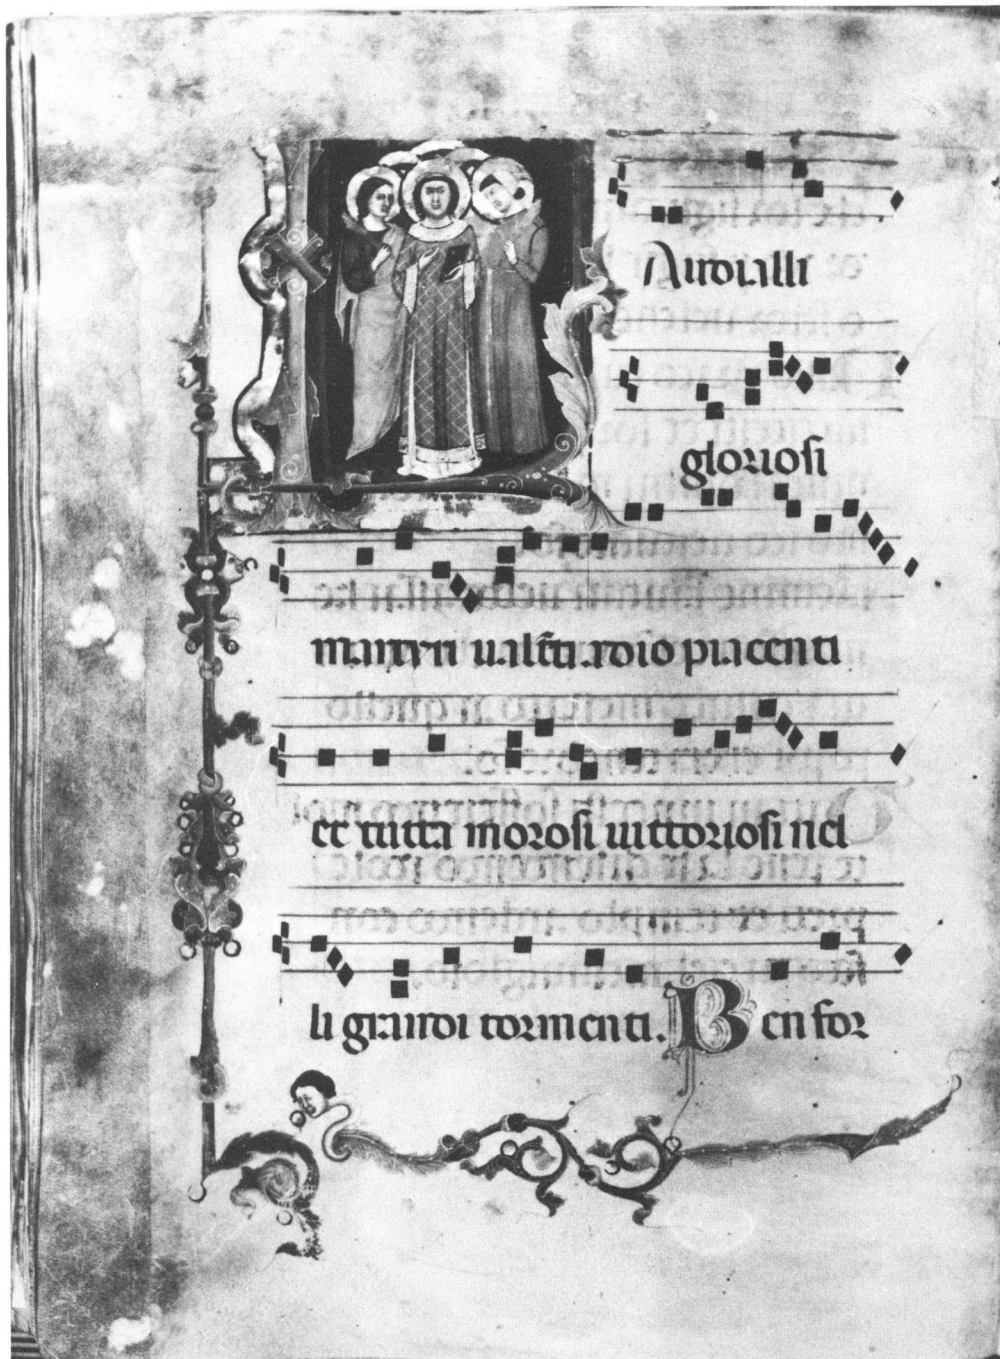 LAudialli
gloriosi
martyri ualēti adio piacenti
et tutta morosi uittoriosi nel
li grandi tormenti. Ben for